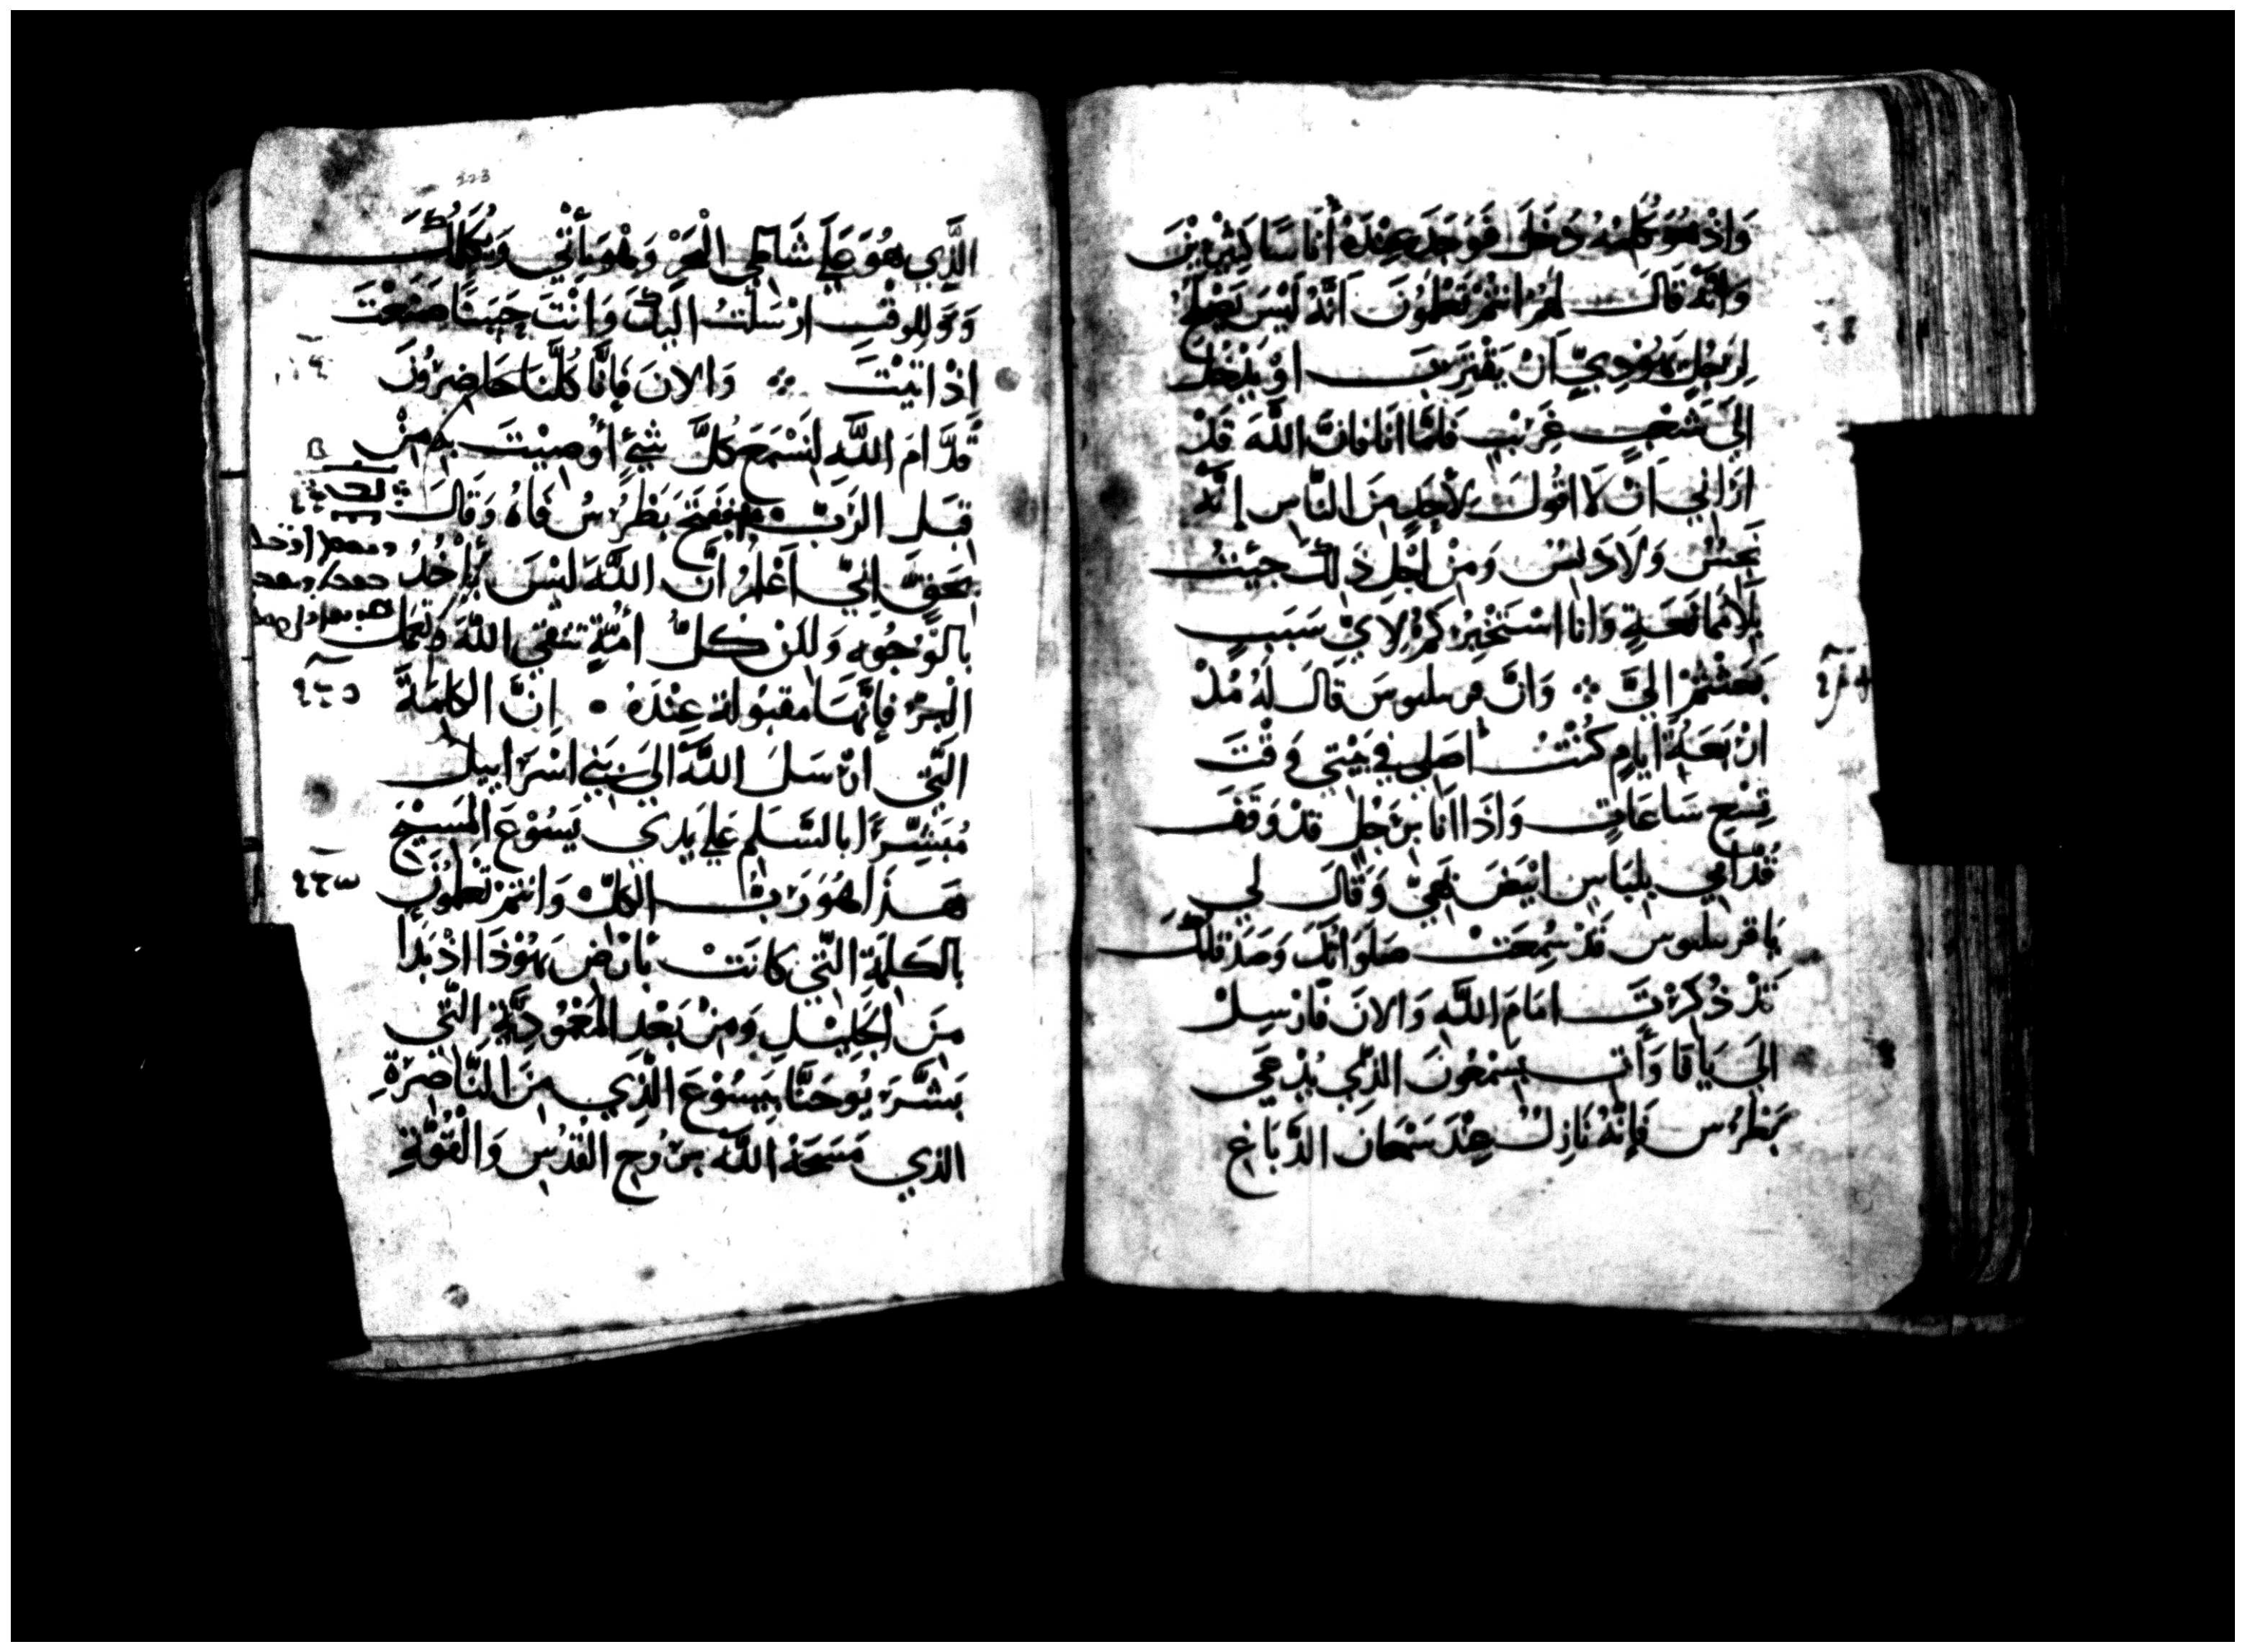 وَاِذْ هُوَ يُكَلِّمُهُ دَخَلَ فَوَجَدَ عِنْدَهُ أُنَاسًا كَثِيْرِيْنَ
وَانَّهُ قَالَ لَهُمْ انْتُمْ تَعْلَمُونَ اَنَّهُ لَيْسَ يَحِلُّ
لِرَجُلٍ يَهُوْدِيٍّ اَنْ يَقْتَرِبَ اوْ يَدْخُلَ
اِلَي شَعْبٍ غَرِيْبٍ فَامَّا انَا فَانَّ اللَّهَ قَدْ
ارَانِي اَنْ لَا اقُولَ لِأَحَدٍ مِنَ النَّاسِ اِنَّهُ
نَجِسٌ وَلَا دَنِسٌ وَمِنْ اَجْلِ ذَلِكَ جِيْتُ
بِلَا مُمَانَعَةٍ وَانَا اسْتَخْبِرُكُمْ لِايِّ سَبَبٍ
بَعَثْتُمْ اِلَيَّ ⁘ وَانَّ قرنيليوسَ قَالَ لَهُ مُذْ
ارْبَعَةِ ايَامٍ كُنْتُ اصَلِي فِي بَيْتِي وَقْتَ
تِسْعِ سَاعَاتٍ وَاذَا انَا بِرَجُلٍ قَدْ وَقَفَ
قُدَّامِي بِلِبَاسٍ ابْيَضَ بَهِيٍّ وَقَالَ لِي
يَا قرنيليوس قَدْ سُمِعَتْ صَلَوَاتُكَ وَصَدَقَاتُكَ
قَدْ ذُكِرَتْ امَامَ اللَّهِ وَالانَ فَارْسِلْ
اِلَي يَافَا وَأْتِ بِسِمْعُونَ الَّذِي يُدْعَي
بَطْرُسَ فَاِنَّهُ نَازِلٌ عِنْدَ سَمْعَانَ الدَّبَّاغِ
223
الَّذِي هُوَ عَلَي شَاطِي الْبَحْرِ وَهُوَ يَأْتِي وَيُكَلِّمُكَ
وَلِلوَقْتِ ارْسَلْتُ الَيْكَ وَانْتَ حَسَنًا صَنَعْتَ
اِذْ اتَيْتَ ⁘ وَالانَ فَاِنَّا كُلَّنَا حَاضِرُوْنَ
قُدَّامَ اللَّهِ لِنَسْمَعَ كُلَّ شَيْءٍ أُوصِيْتَ بِهِ مِنْ
قِبَلِ الرَبِّ فَفَتَحَ بَطْرُسُ فَاهُ وَقَالَ ⁘
بِحَقٍّ اِنِّي اَعْلَمُ انَّ اللَّهَ لَيْسَ يَأْخُذُ
بِالْوُجُوهِ وَلَكِنْ كُلُّ امَّةٍ تَتَّقِي اللَّهَ وَتَعْمَلُ
الْبِرَّ فَاِنَّهَا مَقبُولَة عِنْدَهُ • اِنَّ الكَلِمَةَ
الَّتِي ارْسَلَ اللَّهُ الَي بَنِي اسْرَاييلَ
مُبَشِّرًا بِالسَّلَمِ عَلَي يَدَي يَسُوْعَ المَسِيْحِ
هَذَا هُوَ رَبُّ الكُلِّ وَانْتُمْ تَعْلَمُوْنَ
بِالكَلِمَةِ الَّتِي كَانَتْ بِأَرْضِ يَهُوْذَا اِذْ بَدَا
مِنَ الجَلِيْلِ وَمِنْ بَعْدِ المَعْمُوْدِيَّةِ الَّتِي
بَشَّرَ يُوحَنَّا بِيَسُوْعَ الَّذِي مِنَ النَّاصِرَةِ
الذِي مَسَحَهُ اللَّهُ بِرُوْحِ القُدُسِ وَالْقُوَّةِ